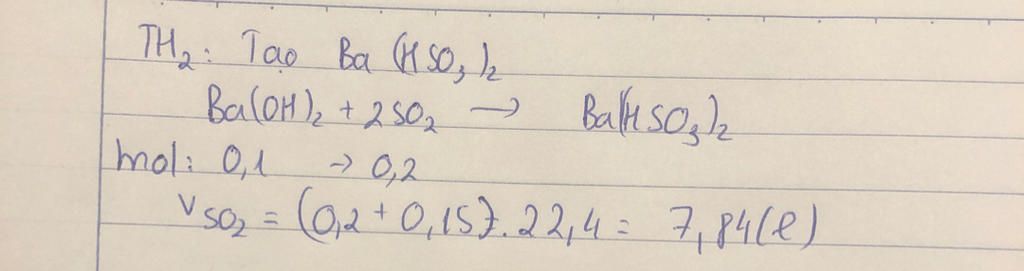 TH₂: Tạo Ba(HSO₃)₂
Ba(OH)₂ + 2SO₂ → Ba(HSO₃)₂
mol: 0,1 → 0,2
V SO₂ = (0,2 + 0,15). 22,4 = 7,84(l)